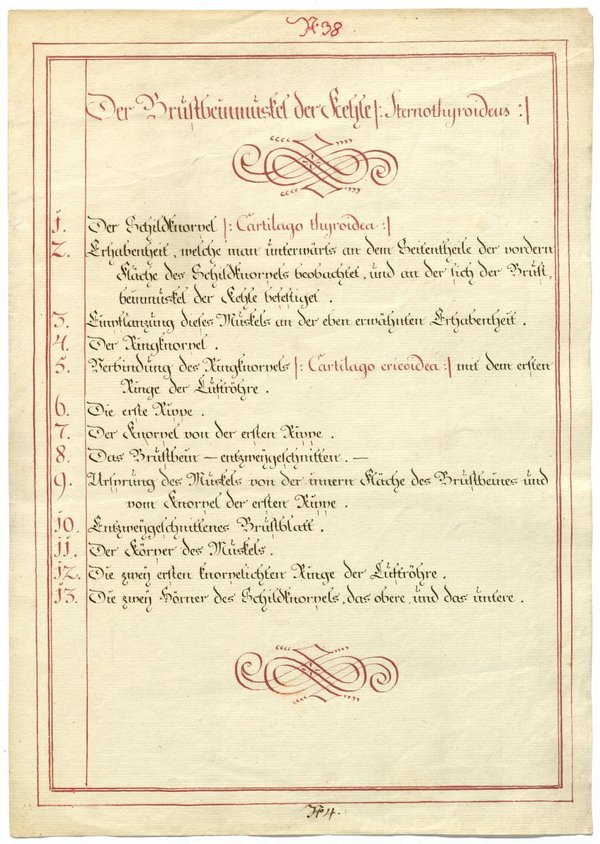 N° 38
Der Brustbeinmuskel der Kehle |: Sternothyroideus :|
1. Der Schildknorpel |: Cartilago thyroidea :|
2. Erhabenheit, welche man unterwärts an dem Seitentheile der vordern
Fläche des Schildknorpels beobachtet, und an der sich der Brust,
beinmuskel der Kehle befestiget.
3. Einpflanzung dieses Muskels an der eben erwähnten Erhabenheit.
4. Der Ringknorpel.
5. Verbindung des Ringknorpels |: Cartilago cricoidea :| mit dem ersten
Ringe der Luftröhre.
6. Die erste Rippe.
7. Der Knorpel von der ersten Rippe.
8. Das Brustbein — entzweygeschnitten. —
9. Ursprung des Muskels von der innern Fläche des Brustbeines und
vom Knorpel der ersten Rippe.
10. Entzweygeschnittenes Brustblatt.
11. Der Körper des Muskels.
12. Die zwey ersten knorpelichten Ringe der Luftröhre.
13. Die zwey Hörner des Schildknorpels, das obere, und das untere.
N° 4.